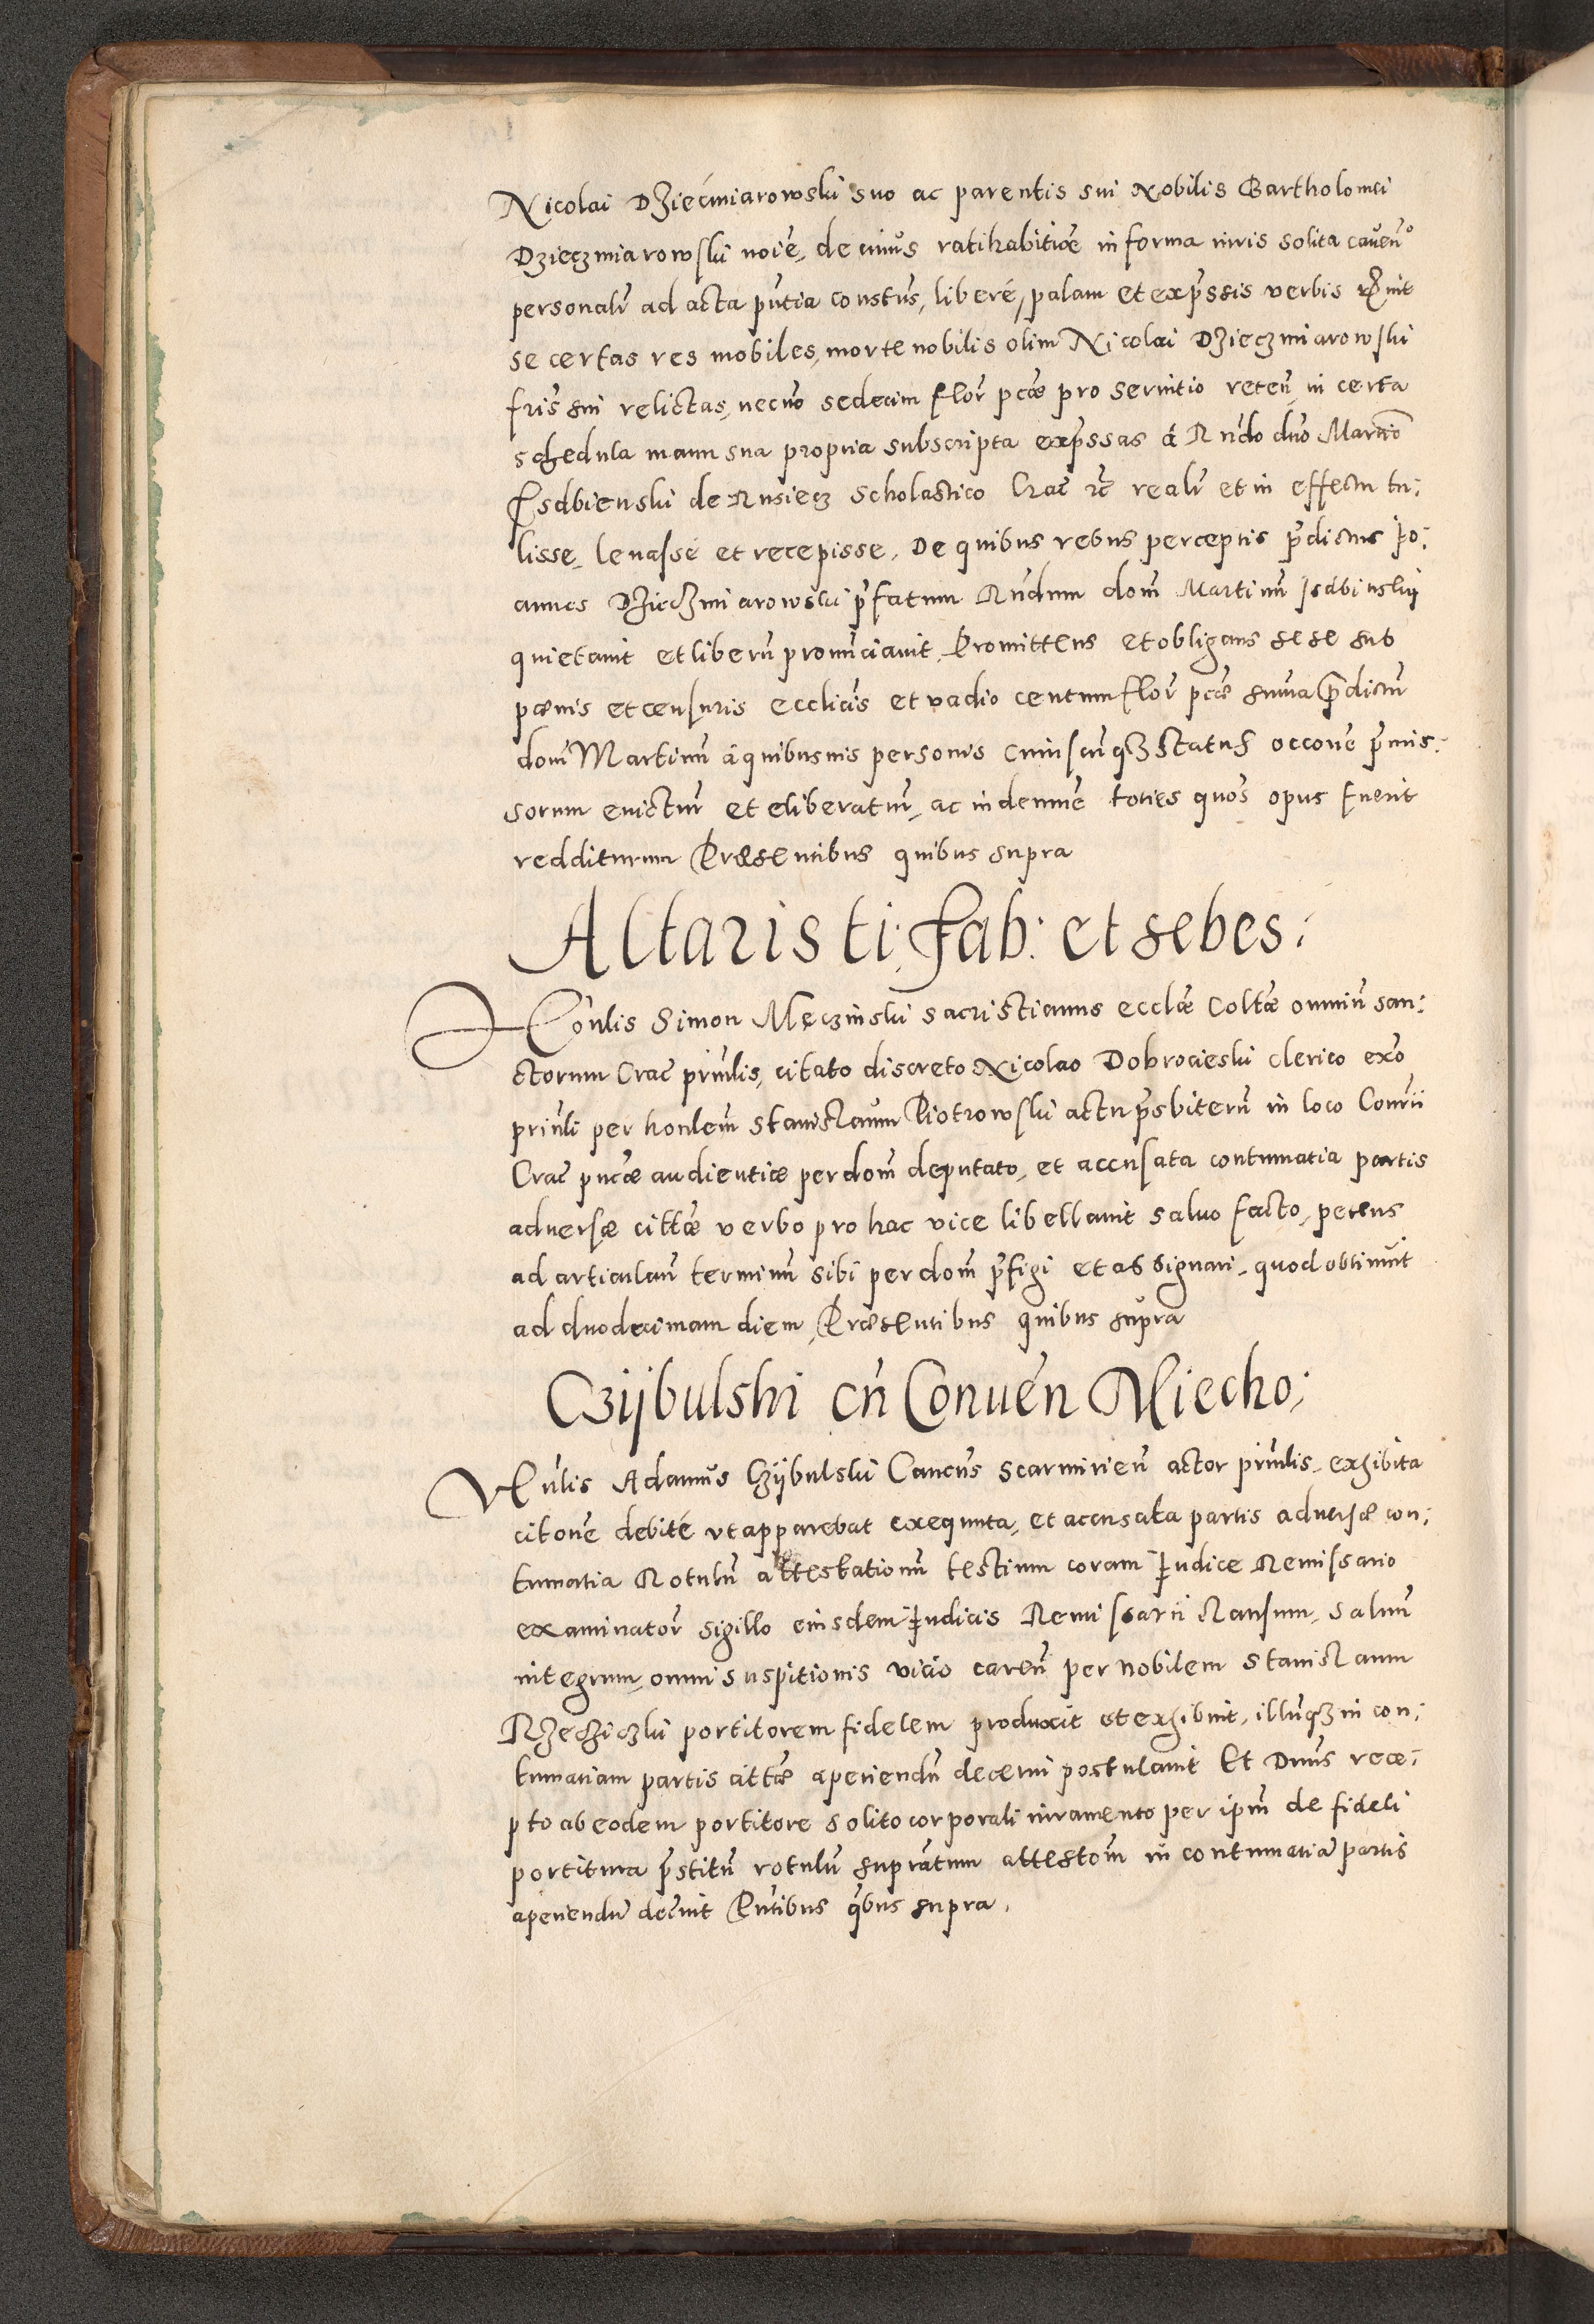 Nicolai Dziećmiarowski suo ac parentis sui Nobilis Bartholomei
Dzieczmiarowski noie, de cuius ratihabitiōe in forma iuris solita caveñ
personalr̃ ad acta pñtia constũs, liberé, palam et exp̃ssis verbis
se certas res mobiles, morte nobilis olim Nicolai Dzieczmiarowski
fr̃is sui relictas, necño sedecim flor̃ pcæ pro seruitio reteñ, in certa
schedula manu sua propria subscripta exp̃ssas á Rñdo dño Martio
Isdbienski de Rusiecz Scholastico Crac̃ rc̃ realr̃ et in effectu tu:
lisse, leuassé et recepisse. De quibus rebus perceptis p̃dictus Jo:
annes Dzieczmiarowski p̃fatum Rñdum dom̃ Martinũ Isdbinskij
quietauit et liberũ pronũciauit. Promittens et obligans sese sub
pœnis et censuris ecclicis et vadio centum flor̃ pcæ suma p̃dictũ
dom̃ Martinũ á quibusuis personis cuiuscunqz status occone p̃mis:
sorum euictur̃ et eliberatur̃, ac indemnẽ toties quo's opus fuerit
redditurum Præsentibus quibus supra
Altaristi: Fab: et sebes:
Hoñlis Simon Męczinski sacristianus ecclæ Coltæ omniũ san:
ctorum Crac̃ prinĩlis, citato discreto Nicolao Dobrocieski clerico exo
prinĩli per honlem̃ Stanislaum Piotrowski actu p̃sbiterũ in loco Consĩi
Crac̃ pñtæ audientiæ per dom̃ deputato, et accusata contumatia partis
aduersæ cittæ verbo pro hac vice libellauit saluo facto, petens
ad articulan̄ terminũ sibi per dom̃ p̃figi et assignari, quod obtinuit
ad duodecimam diem, Præsentibus quibus supra
Czijbulski cũ Conuén Miecho:
Vñlis Adamus Czijbulski Cancũs Scarmirieñ actor prinĩlis, exhibita
citonẽ debité ut apparebat exequuta, et accusata partis aduersæ con:
tumatia Rotulũ attestationũ testium coram Judice Remissario
examinator̃ sigillo eiusdem Judicis Remissarii clausum, saluũ
integrum, omni suspitionis vicio careñ per nobilem Stanislaum
Rzecziczki portitorem fidelem produxit et exhibuit, illũqz in con:
tumatiam partis cittæ aperiendũ decerni postulauit Et Dñus rece:
pto ab eodem portitore solito corporali iuramento per ipm̃ de fideli
portitura p̃stitũ rotulũ suprãtum attestom̃ in contumatiã partis
aperiendũ dec̃uit Pñtibus qbus supra.